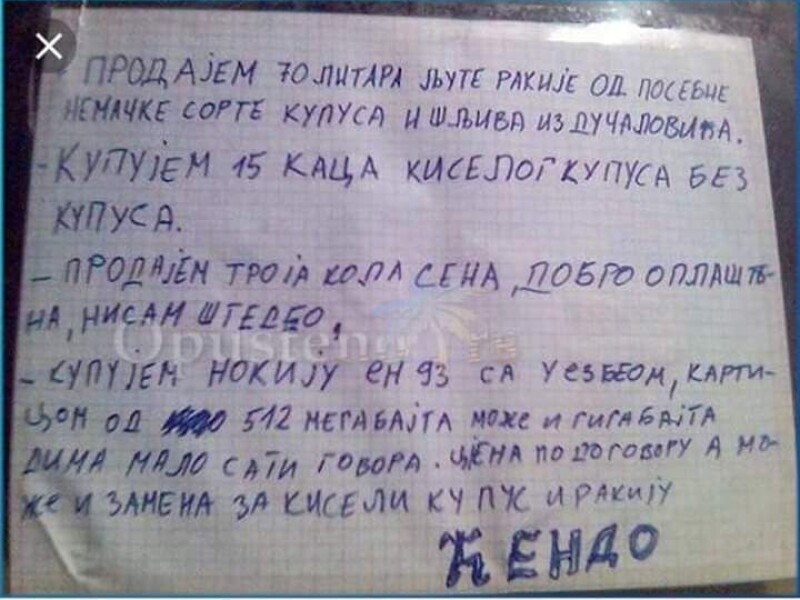 - ПРОДАЈЕМ 70 ЛИТАРА ЉУТЕ РАКИЈЕ ОД ПОСЕБНЕ
НЕМАЧКЕ СОРТЕ КУПУСА И ШЉИВА ИЗ ДУЧАЛОВИЋА.
- КУПУЈЕМ 15 КАЦА КИСЕЛОГ КУПУСА БЕЗ
КУПУСА.
- ПРОДАЈЕМ ТРОЈА КОЛА СЕНА, ДОБРО ОПЛАШЋЕ-
НА, НИСАМ ШТЕДЕО.
Opusteno.rs
- КУПУЈЕМ НОКИЈУ ЕН 93 СА УЕЗБЕОМ, КАРТИ-
ЦОМ ОД 512 МЕГАБАЈТА МОЖЕ И ГИГАБАЈТА
ДИМА МАЛО САТИ ГОВОРА. ЦЈЕНА ПО ДОГОВОРУ А МО-
ЖЕ И ЗАМЕНА ЗА КИСЕЛИ КУПУС И РАКИЈУ
ЋЕНДО